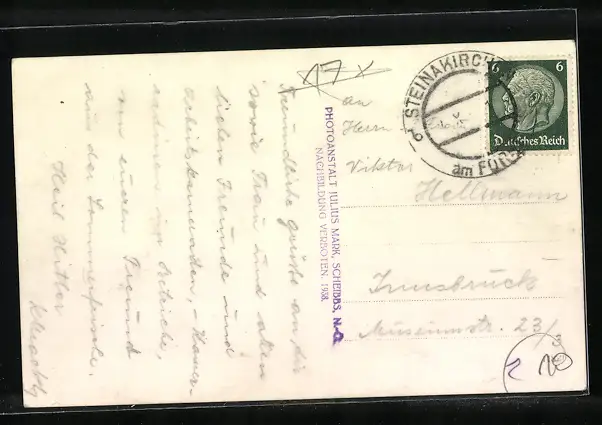 Freundliche Grüße an dich
sowie Frau und allen
lieben Freunde und
Arbeitskameraden, - Kamer-
von euren Freund
aus der Sommerfrische.
Heil Hitler
PHOTOANSTALT JULIUS MARK, SCHEIBBS, N.-D.
NACHBILDUNG VERBOTEN. 1938.
17 x
An
Herrn
Viktor
Hellmann
Innsbruck
Museumstr. 23/3
STEINAKIRCHEN
am FORST
6 6
Deutsches Reich
20